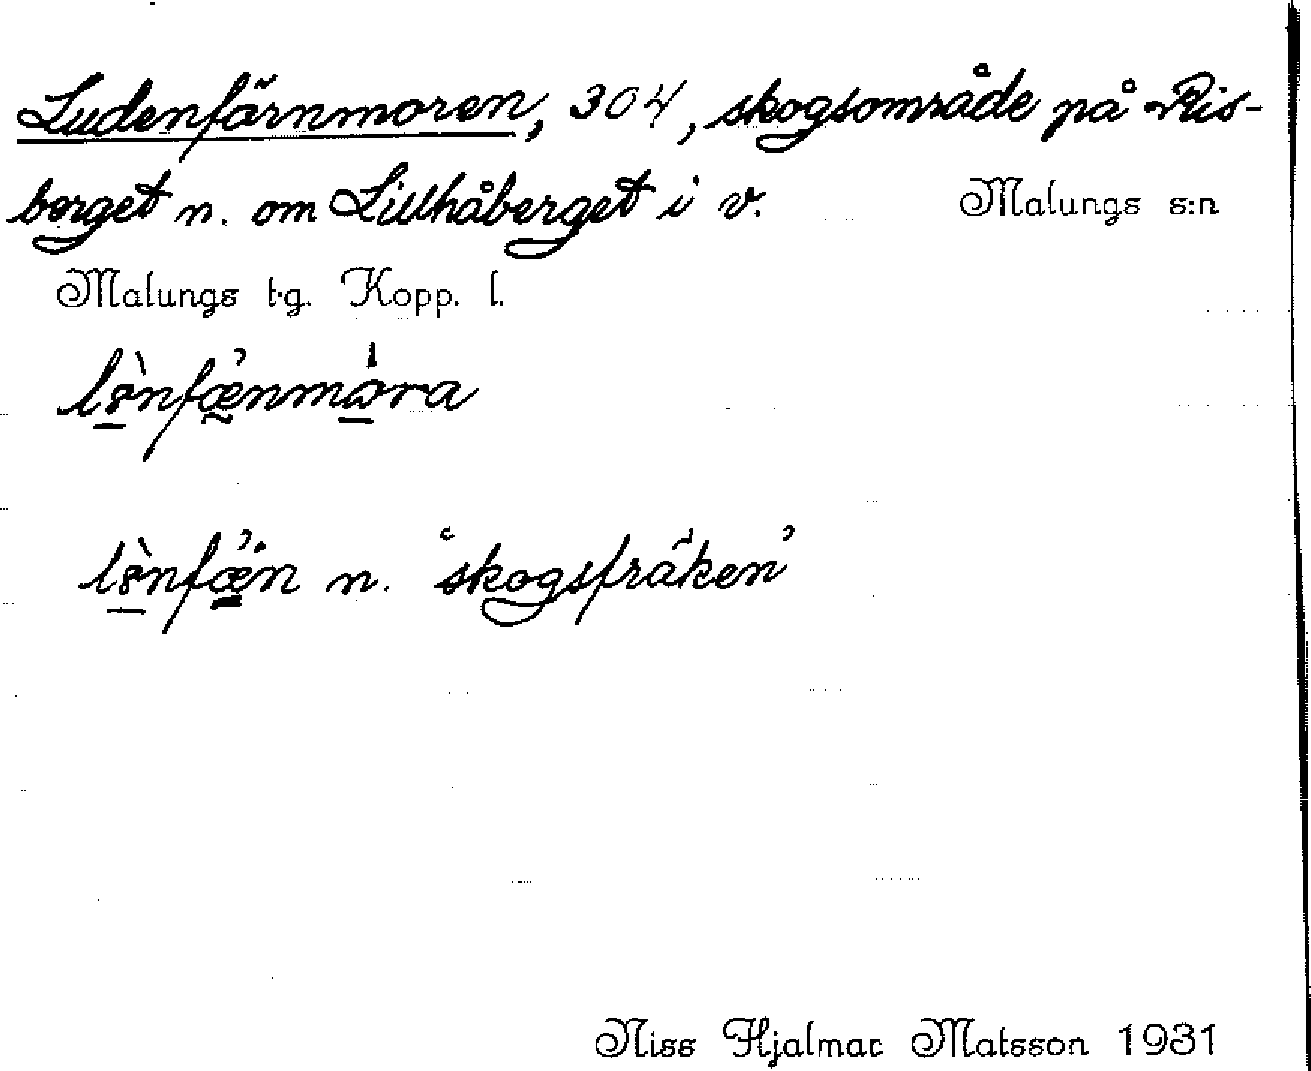 Ludenfärnmoren, 304, skogsområde på Ris-
berget n. om Lillhåberget i v. Malungs s:n
Malungs t.g. Kopp. l.
lò̱nfæ̰nmò̱ra
lò̱nfæ̱n n. 'skogsfräken'
Niss Hjalmar Matsson 1931